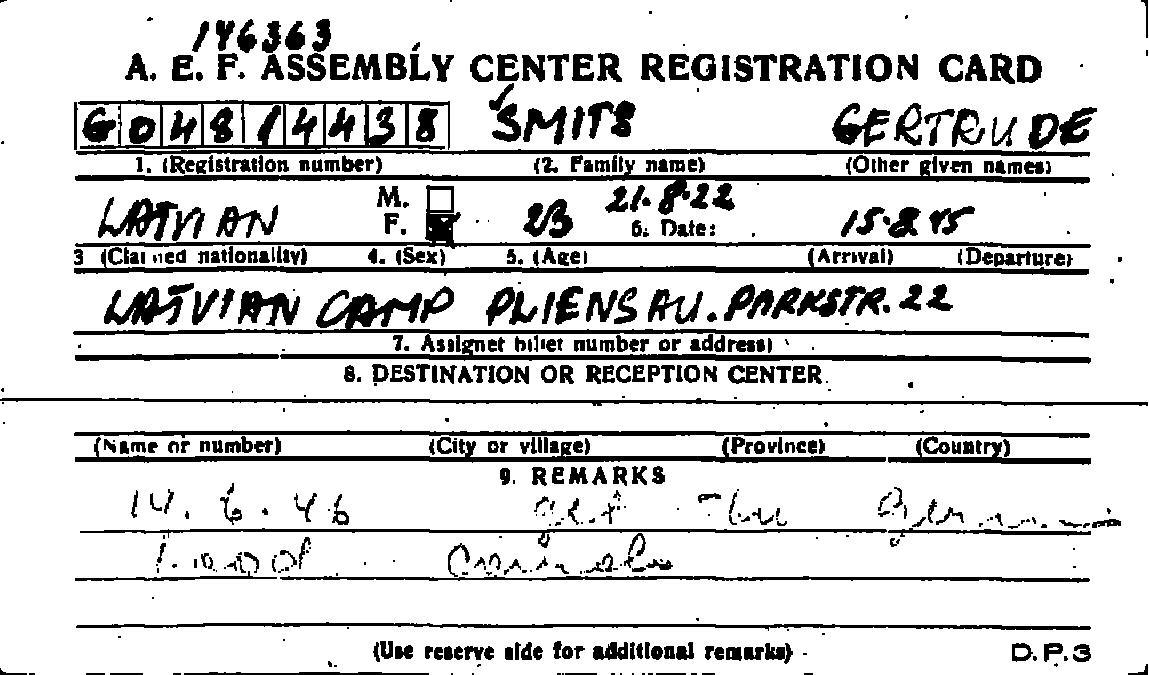 146363
A. E. F. ASSEMBLY CENTER REGISTRATION CARD
G04814438 SMITS GERTRUDE
1. (Registration number) (2. Family name) (Other given names)
LATVIAN M. F. 23 21.8.22 6. Date: 15.8 45
3 (Claimed nationality) 4. (Sex) 5. (Age) (Arrival) (Departure)
LATVIAN CAMP PLIENSAU. PARKSTR. 22
7. Assignet billet number or address)
8. DESTINATION OR RECEPTION CENTER
(Name or number) (City or village) (Province) (Country)
9. REMARKS
14. 6. 46 get the
(Use reserve side for additional remarks)
D.P.3